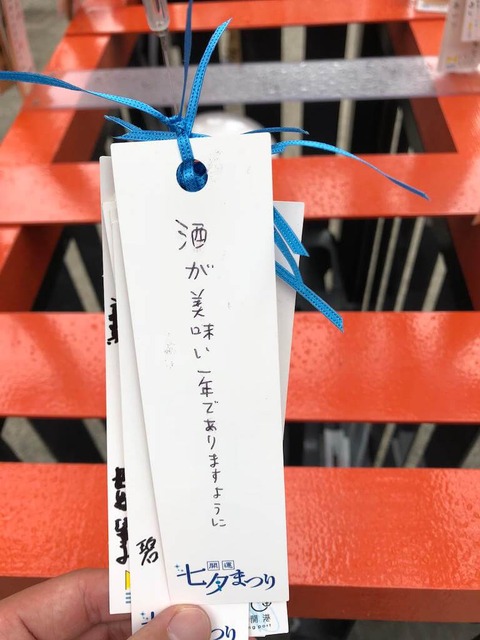 酒が美味い一年でありますように
開運
七夕まつり
碧
まつり
開港